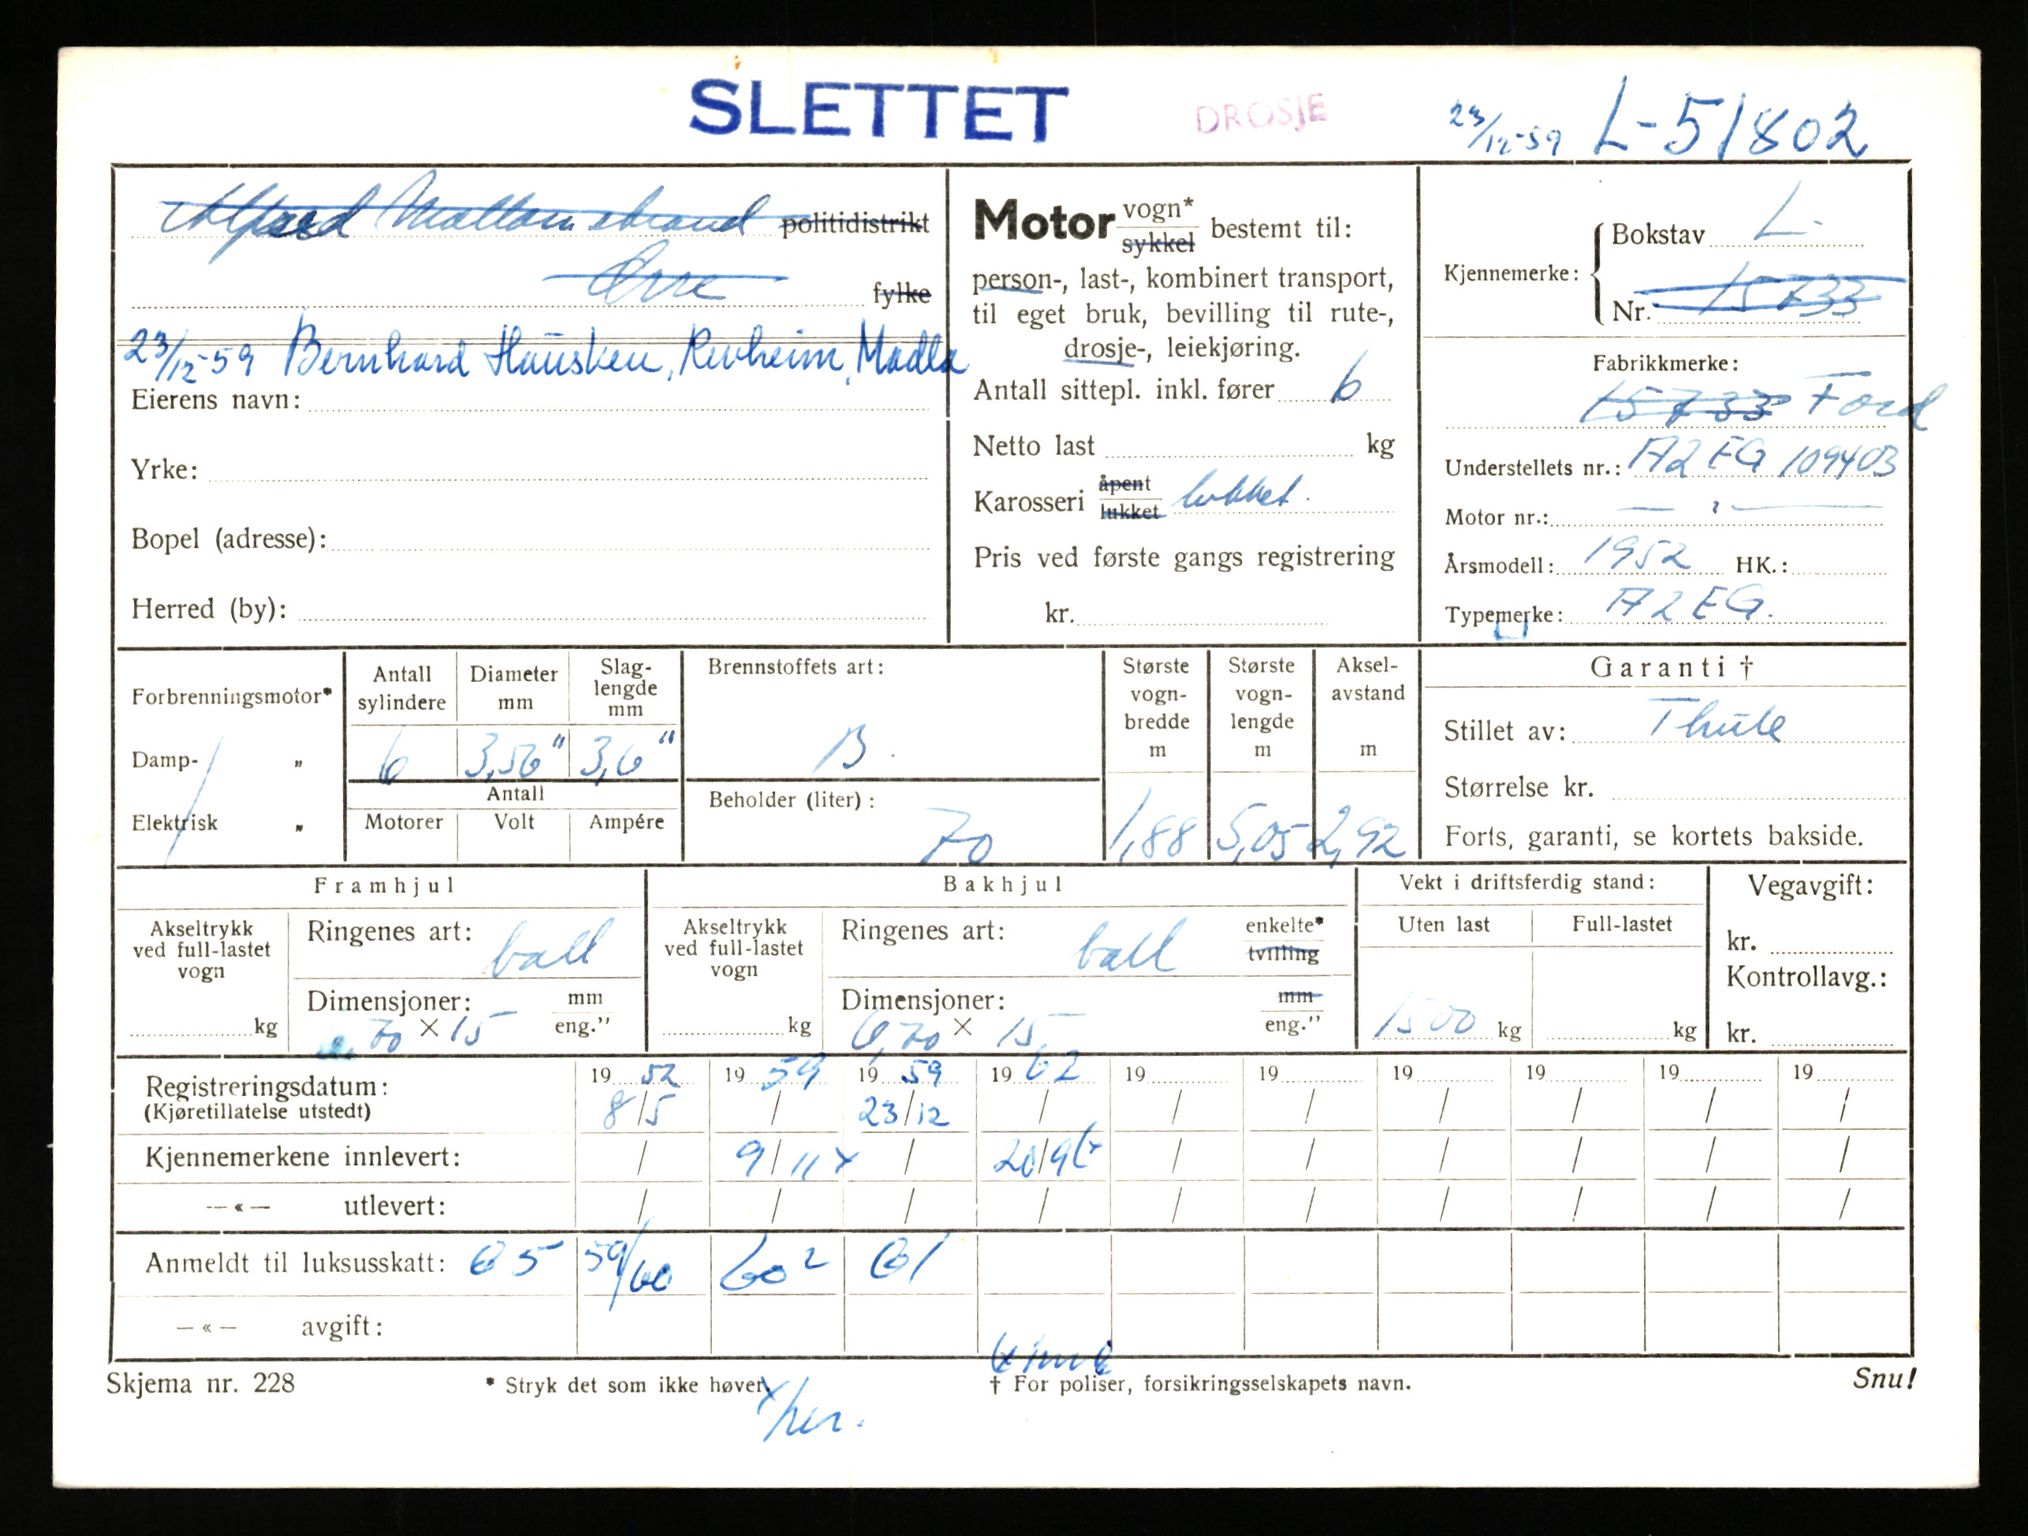 SLETTET DROSJE 23/12-59 L-51802
politidistrikt
fylke
23/12-59 Bernhard Hausken, Revheim, Madla
Eierens navn:
Yrke:
Bopel (adresse):
Herred (by):
Motor vogn* sykkel bestemt til:
person-, last-, kombinert transport,
til eget bruk, bevilling til rute-,
drosje-, leiekjøring.
Antall sittepl. inkl. fører 6
Netto last kg
Karosseri åpent lukket lukket.
Pris ved første gangs registrering
kr.
Kjennemerke: Bokstav L-
Nr. 15733
Fabrikkmerke:
15733 Ford
Understellets nr.: A2EG 109403
Motor nr.: — " —
Årsmodell: 1952 HK.:
Typemerke: A2EG.
Forbrenningsmotor*
Damp- „
Elektrisk „
Antall sylindere
6
Diameter mm
3,56"
Slag-
lengde
mm
3,6"
Antall
Motorer Volt Ampére
Brennstoffets art:
B.
Beholder (liter):
70
Største
vogn-
bredde
m
1,88
Største
vogn-
lengde
m
5,05
Aksel-
avstand
m
2,92
Garanti †
Stillet av: Thule
Størrelse kr.
Forts, garanti, se kortets bakside.
Framhjul
Akseltrykk
ved full-lastet
vogn
kg
Ringenes art:
ball
Dimensjoner: mm
6,70 × 15 eng."
Bakhjul
Akseltrykk
ved full-lastet
vogn
kg
Ringenes art: enkelte*
ball tvilling
Dimensjoner: mm
6,70 × 15 eng."
Vekt i driftsferdig stand:
Uten last Full-lastet
1500 kg kg
Vegavgift:
kr.
Kontrollavg.:
kr.
Registreringsdatum: 19 52 19 59 19 59 19 62 19 19 19 19 19 19
(Kjøretillatelse utstedt) 8/5 / 23/12 / / / / / / /
Kjennemerkene innlevert: / 9/11 x / 20/9 / / / / / /
—«— utlevert: / / / / / / / / / /
Anmeldt til luksusskatt: 65 59/60 60² 61
—«— avgift:
Skjema nr. 228 * Stryk det som ikke høver. † For poliser, forsikringsselskapets navn. Snu!